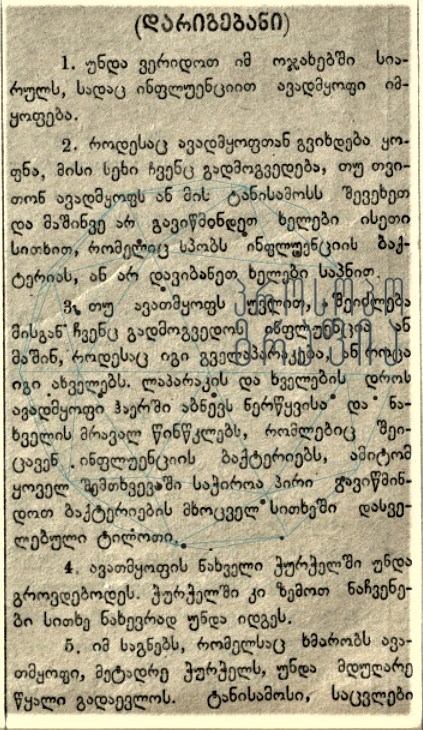 (დარიგებანი)
1. უნდა ვერიდოთ იმ ოჯახებში სია-
რულს, სადაც ინფლუენციით ავადმყოფი იმ-
ყოფება.
2. როდესაც ავადმყოფთან გვიხდება ყო-
ფნა, მისი სეხი ჩვენც გადმოგვედება, თუ თვი-
თონ ავადმყოფს ან მის ტანისამოსს შევეხეთ
და მაშინვე არ გავიწმინდეთ ხელები ისეთი
სითხით, რომელიც სპობს ინფლუენციის ბაქ-
ტერიას, ან არ დავიბანეთ ხელები საპნით.
3. თუ ავათმყოფს ვუვლით, შეიძლება
მისგან ჩვენც გადმოგვედოს ინფლუენცია ან
მაშინ, როდესაც იგი გველაპარაკება, ან როცა
იგი ახველებს. ლაპარაკის და ხველების დროს
ავადმყოფი ჰაერში აბნევს ნერწყვისა და ნა-
ხველის მრავალ წინწკლებს, რომლებიც შეი-
ცავენ ინფლუენციის ბაქტერიებს, ამიტომ
ყოველ შემთხვევაში საჭიროა პირი გავიწმინ-
დოთ ბაქტერიების მხოცველ სითხეში დასვე-
ლებული ტილოთი.
4. ავათმყოფის ნახველი ჭურჭელში უნდა
გროვდებოდეს. ჭურჭელში კი ზემოთ ნაჩვენე-
ბი სითხე ნახევრად უნდა იდგეს.
5. იმ საგნებს, რომელსაც ხმარობს ავა-
თმყოფი, მეტადრე ჭურჭელს, უნდა მდუღარე
წყალი გადაევლოს. ტანისამოსი, საცვლები
პროსოპო
გრაფია